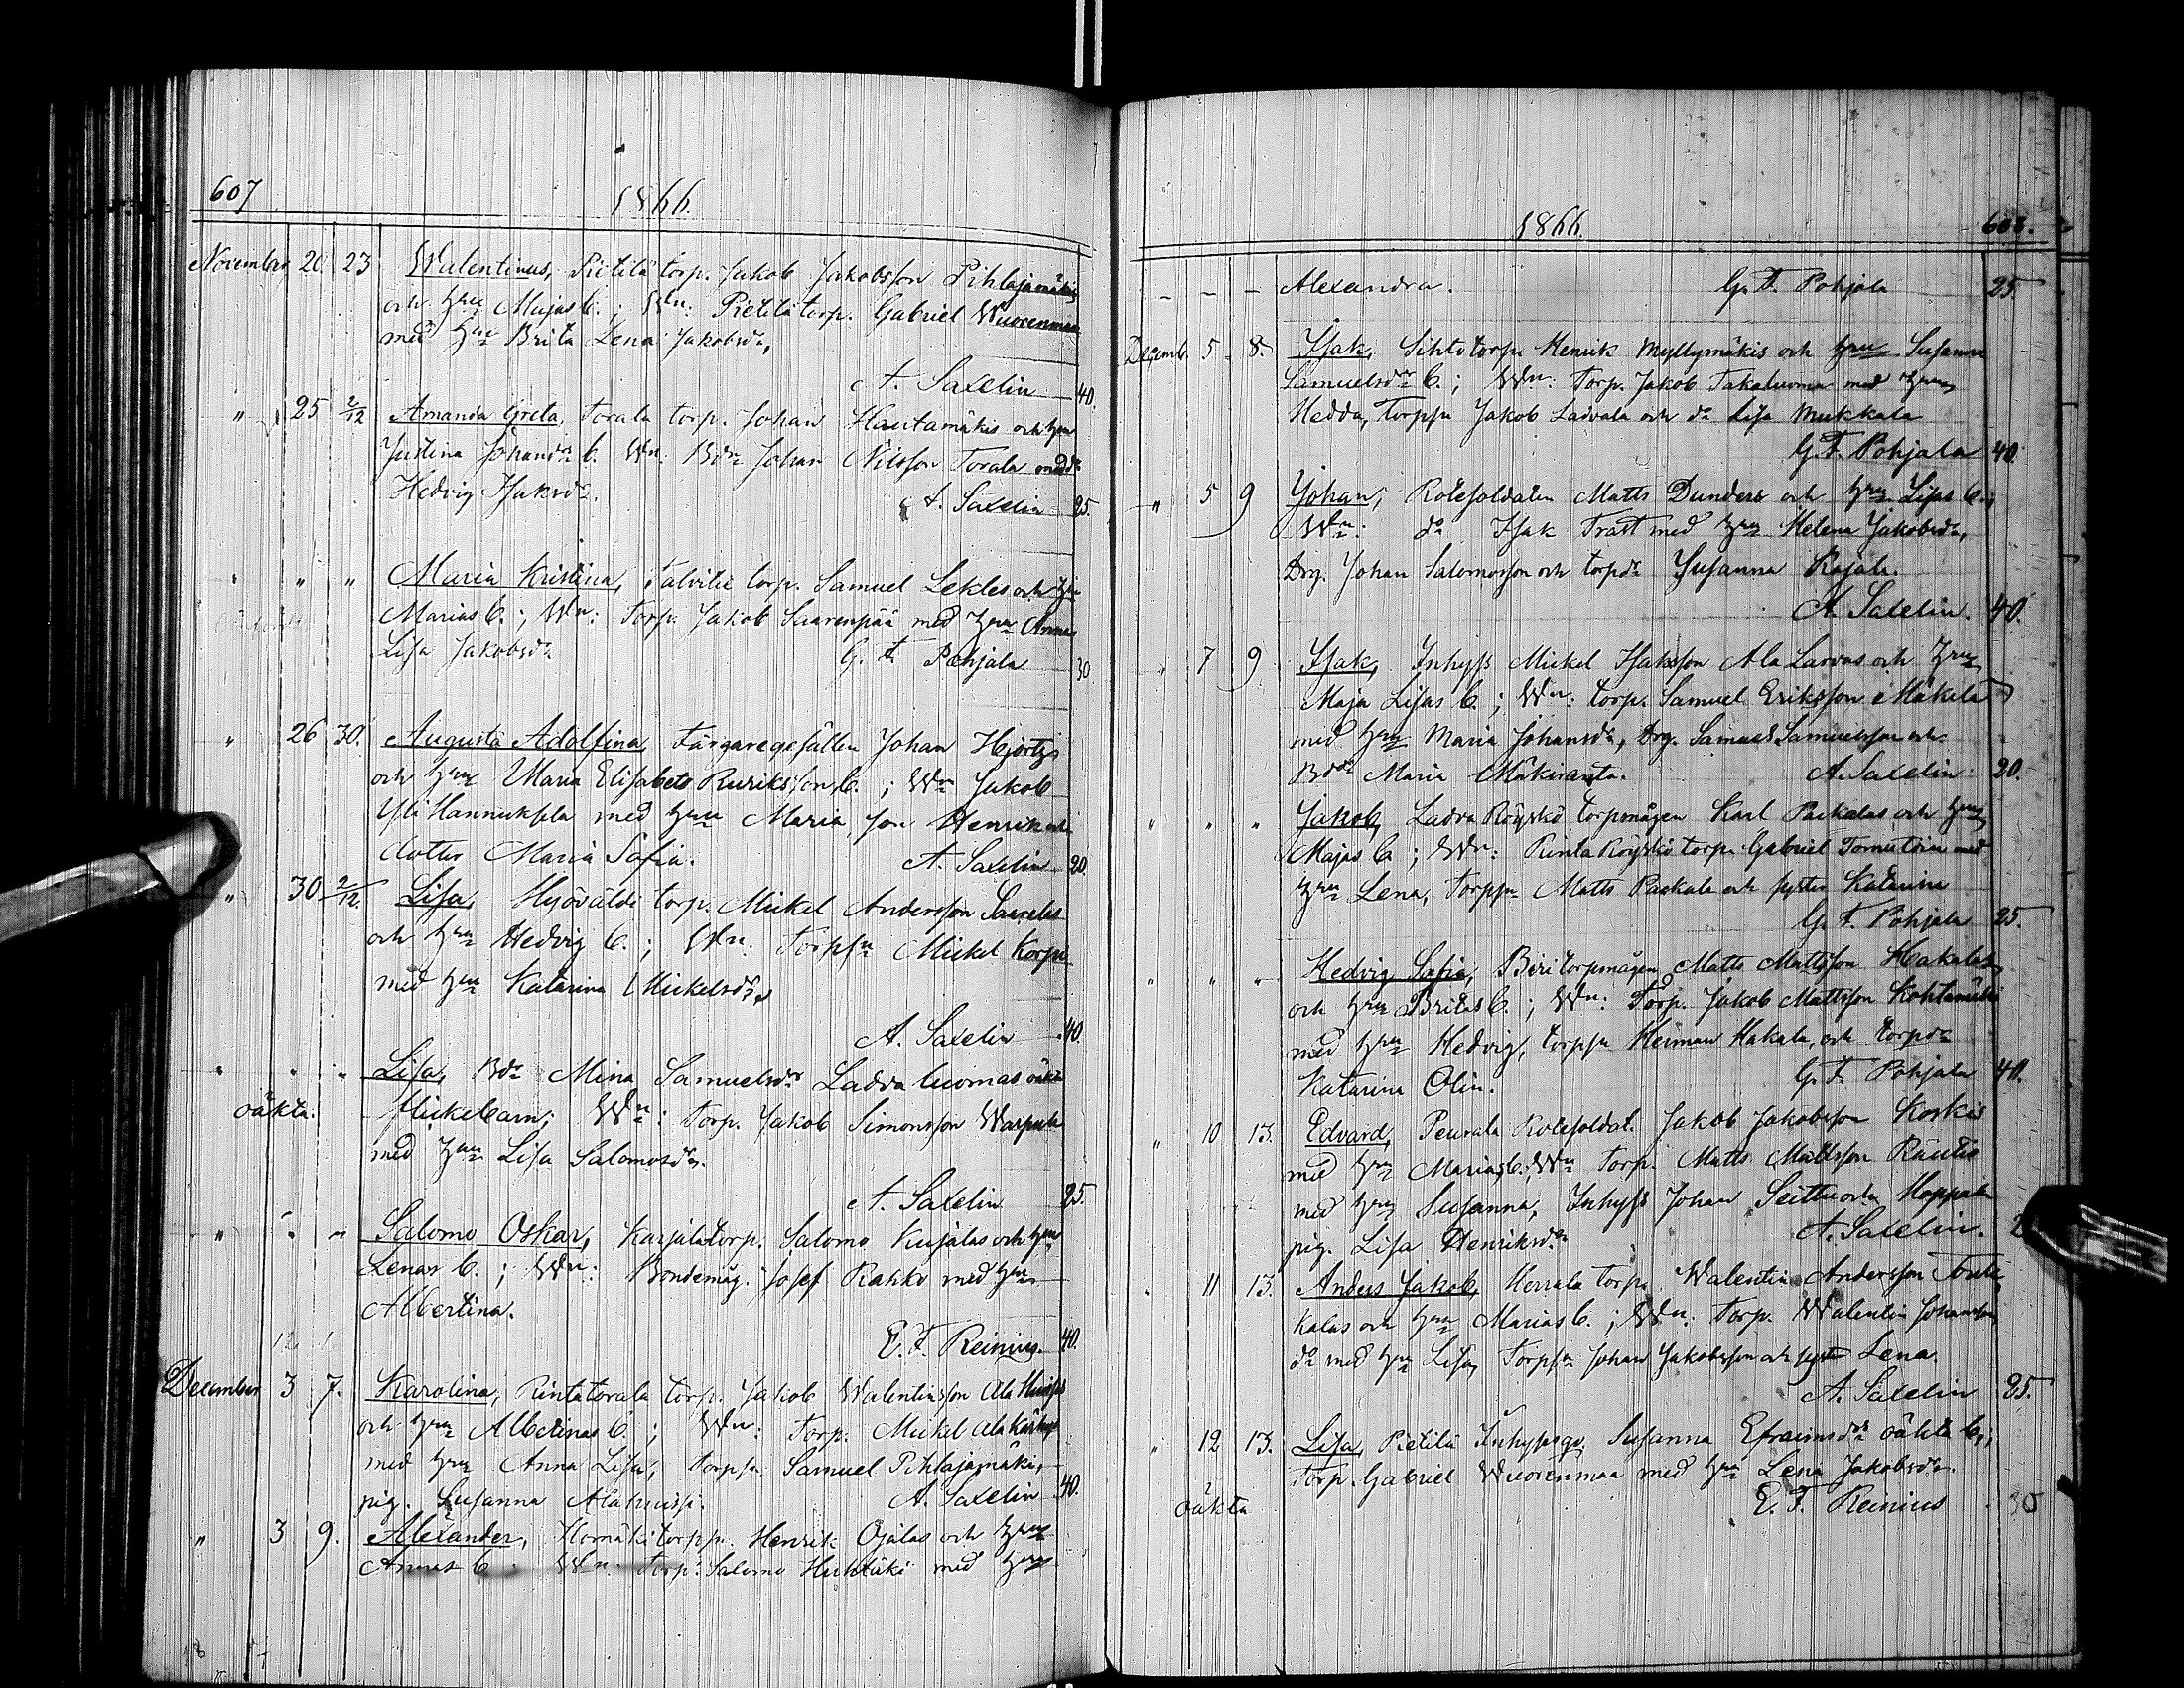 607
1866.
November 20. 23 Walentinus, Pietilä torp. Jakob Jakobsson Pihlajamäkis
och hru Majas b.; Wn: Pietilä torp. Gabriel Wuorenmaa
med hru Brita Lena Jakobsdr,
A. Saxelin 40.
" 25 2/12 Amanda Greta, Torala torp. Johan Hautamäkis och hru
Justina Johansdr b. Wn: Bdn Johan Nilsson Torala med
Hedvig Isaksdr.
A. Saxelin 25.
" " " Maria Kristina, Talvitie torp. Samuel Lekles och hru
Marias b.; Wn: Torp. Jakob Saarenpää med hru Anna
Lisa Jakobsdr G. F. Pohjala 30
" 26 30. Augusta Adolfina, Färgaregesällen Johan Hjortzs
och hru Maria Elisabets Ruriksson b.; Wn Jakob
Yli Hannuksela med hru Maria, son Henrik och
dotter Maria Sofia. A. Saxelin 20.
" 30 2/12. Lisa, Hyöväldi torp. Mickel Andersson
och hru Hedvig b.; Wn: Torpsn Mickel Korpi
med hru Katarina Mickelsdr,
A. Saxelin 40.
" " " Lisa, Bdr Mina Samuelsdr Ladvaluomas oäkta
oäkta. flickebarn; Wn: Torp. Jakob Simonsson
med hru Lisa Salomosdr.
A. Saxelin 25.
" " " Salomo Oskar, Karjala torp. Salomo Kujalas och hru
Lenas b.; Wn: Bondemåg. Josef Rahko med hru
Albertina.
E. F. Reinius. 40.
December 3 7. Karolina, Rintatorala torp. Jakob Walentinsson
och hru Albetinas b.; Wn: Torp. Mickel
med hru Anna Lisa, torpsn Samuel Pihlajamäki,
pig. Susanna A. Saxelin 40.
" 3 9. Alexander, torpp. Henrik Ojalas och hru
Annas b.; Wn. Torp. Salomo Huhtäki med hru
1866. 608.
– – – Alexandra. G. F. Pohjala 25.
Decemb. 5 8. Isak, Sihto torp. Henrik Myllymäkis och hru Susanna
Samuelsdr b.; Wn: Torp. Jakob Takaluoma med hru
Hedda, Torpsn Jakob Ladvala och dr Lisa Mukkala
G. F. Pohjala 40.
" 5 9 Johan, Rotesoldaten Matts Dunders och hru Lisas b.;
Wn: do Isak Trast med hru Helena Jakobsdr,
Drg. Johan Salomosson och torpdr Susanna Rajala.
A. Saxelin. 40.
" 7 9. Isak, Inhyss Mickel Isaksson Ala Larvas och hru
Maja Lisas b.; Wn: torp. Samuel Eriksson Mäkelä
med hru Maria Johansdr, Drg. Samuel Samuelsson och
Bddr Maria Mäkiranta. A. Saxelin. 20.
" " " Jakob, Ladva Röyskö torpmågen Karl Paskalas och hru
Majas b.; Wn: Rinta Röyskö torp. Gabriel med
hru Lena, Torpsn Matts Paskala och syster Katarina
G. F. Pohjala 25.
" " " Hedvig Sofia, Biri torpmågen Matts Mattsson Hakalas
och hru Britas b.; Wn: Torp. Jakob Mattsson
med hru Hedvig, torpsn Heiman Hakala, och torpdr
Katarina Olin. G. F. Pohjala 40.
" 10 13. Edvard, Peurala Rotesoldat. Jakob Jakobsson Koskis
med hru Marias b.; Wn Torp. Matts Mattsson Rautio
med hru Susanna, Inhyss Johan
pig. Lisa Henriksdr. A. Saxelin. 2
" 11 13. Anders Jakob, Herrala torp. Walentin Andersson
kalas och hru Marias b.; Wn: Torp. Walentin Johansson
do med hru Lisa, Torpsn Johan Jakobsson och syster Lena.
A. Saxelin 25.
" 12 13. Lisa, Pietilä Inhysesqv. Susanna Efraimsdr oäkta b.;
Torp. Gabriel Wuorenmaa med hru Lena Jakobsdr.
oäkta E. F. Reinius 30